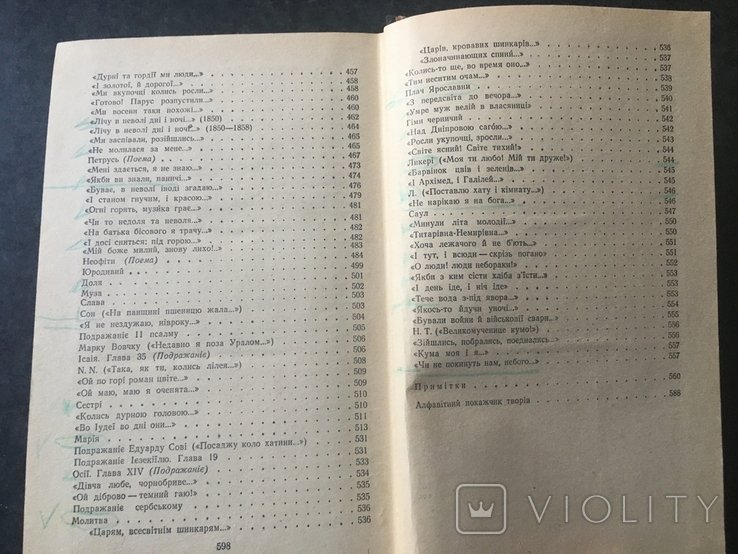 «Дурні та гордії ми люди...» 457
«І золотої, й дорогої...» 458
«Ми вкупочці колись росли...» 458
«Готово! Парус розпустили...» 460
«Ми восени таки похожі...» 460
«Лічу в неволі дні і ночі...» (1850) 462
«Лічу в неволі дні і ночі...» (1850—1858) 464
«Ми заспівали, розійшлись...» 466
«Не молилася за мене...» 467
Петрусь (Поема) 473
«Мені здається, я не знаю...» 474
«Якби ви знали, паничі...» 476
«Буває, в неволі іноді згадаю...» 479
«І станом гнучим, і красою...» 481
«Огні горять, музика грає...» 481
«Чи то недоля та неволя...» 482
«На батька бісового я трачу...» 482
«І досі сниться: під горою...» 483
«Мій боже милий, знову лихо!..» 484
Неофіти (Поема) 499
Юродивий 501
Доля 502
Муза 503
Слава 503
Сон («На панщині пшеницю жала...») 504
«Я не нездужаю, нівроку...» 505
Подражаніє 11 псалму 506
Марку Вовчку («Недавно я поза Уралом...») 506
Ісаія. Глава 35 (Подражаніє) 508
N. N. («Така, як ти, колись лілея...») 509
«Ой по горі роман цвіте...» 509
«Ой маю, маю я оченята...» 510
Сестрі 510
«Колись дурною головою...» 511
«Во Іудеї во дні они...» 513
Марія 531
Подражаніє Едуарду Сові («Посаджу коло хатини...») 531
Подражаніє Ієзекіїлю. Глава 19 533
Осії. Глава XIV (Подражаніє) 534
«Дівча любе, чорнобриве...» 535
«Ой діброво — темний гаю!» 535
Подражаніє сербському 536
Молитва
«Царям, всесвітнім шинкарям...»
598
«Царів, кровавих шинкарів...» 536
«Злоначинающих спини...» 537
«Колись-то ще, во время оно...» 537
«Тим неситим очам...»
Плач Ярославни
«З передсвіта до вечора...» 540
«Умре муж велій в власяниці» 541
Гімн черничий
«Над Дніпровою сагою...» 542
«Росли укупочці, зросли...» 543
«Світе ясний! Світе тихий!» 544
Ликері («Моя ти любо! Мій ти друже!») 544
«Барвінок цвів і зеленів...» 545
«І Архімед, і Галілей...» 545
Л. («Поставлю хату і кімнату...») 546
«Не нарікаю я на бога...» 546
Саул
«Минули літа молодії...» 550
«Титарівна-Немирівна...» 550
«Хоча лежачого й не б'ють...» 551
«І тут, і всюди — скрізь погано» 551
«О люди! люди небораки!» 552
«Якби з ким сісти хліба з'їсти...» 553
«І день іде, і ніч іде» 554
«Тече вода з-під явора...» 554
«Якось-то йдучи уночі...»
«Бували войни й військовії свари...»
Н. Т. («Великомученице кумо!»)
«Зійшлись, побрались, поєднались...» 556
«Кума моя і я...» 557
«Чи не покинуть нам, небого...» 557
Примітки 560
Алфавітний покажчик творів 588
VIOLITY